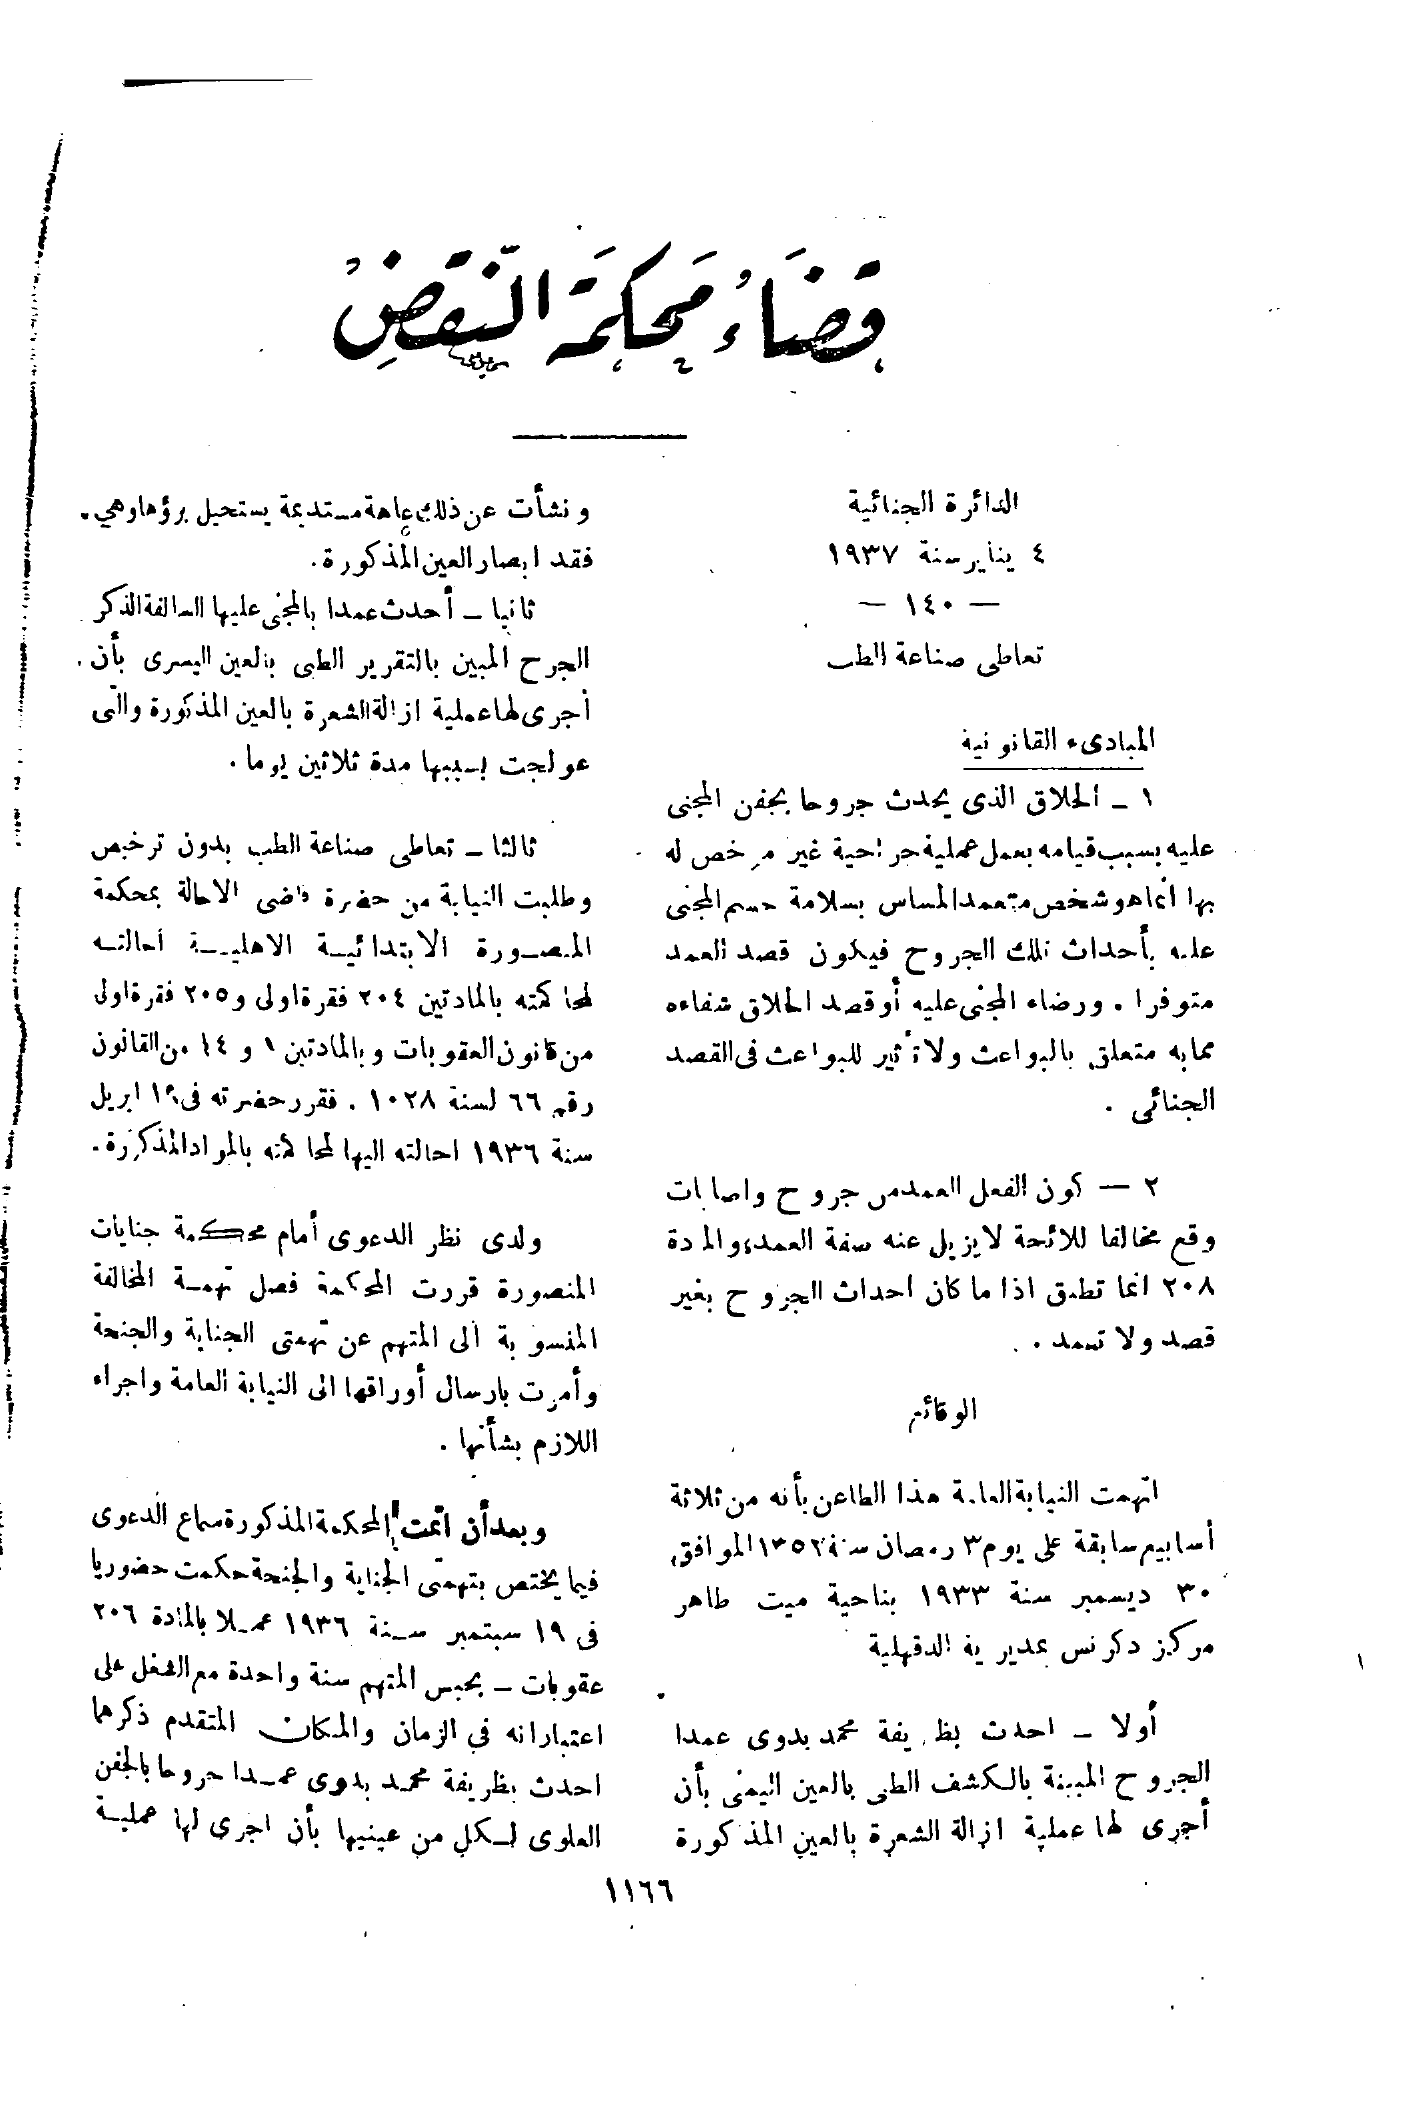 قضاء محكمة النقض
الدائرة الجنائية
٤ يناير سنة ١٩٣٧
— ١٤٠ —
تعاطى صناعة الطب
المبادىء القانونية
١ ـ الحلاق الذى يحدث جروحا بجفن المجنى
عليه بسبب قيامه بعمل عملية جراحية غير مرخص له
بها انما هو شخص متعمد المساس بسلامة جسم المجنى
عليه بأحداث تلك الجروح فيكون قصد العمد
متوفرا . ورضاء المجنى عليه أو قصد الحلاق شفاءه
مما به متعلق بالبواعث ولا تأثير للبواعث فى القصد
الجنائى .
٢ — كون الفعل العمد من جروح واصابات
وقع مخالفا للائحة لا يزيل عنه صفة العمد، والمادة
٢٠٨ انما تطبق اذا ما كان احداث الجروح بغير
قصد ولا تعمد .
الوقائع
اتهمت النيابة العامة هذا الطاعن بأنه من ثلاثة
أسابيع سابقة على يوم ٣ رمضان سنة ١٣٥٢ الموافق
٣٠ ديسمبر سنة ١٩٣٣ بناحية ميت طاهر
مركز دكرنس بمديرية الدقهلية
أولا ـ احدث بظريفة محمد بدوى عمدا
الجروح المبينة بالكشف الطبى بالعين اليمنى بأن
أجرى لها عملية ازالة الشعرة بالعين المذكورة
ونشأت عن ذلك عاهة مستديمة يستحيل برؤها وهي
فقد ابصار العين المذكورة.
ثانيا ـ أحدث عمدا بالمجنى عليها السالفة الذكر
الجرح المبين بالتقرير الطبى بالعين اليسرى بأن
أجرى لها عملية ازالة الشعرة بالعين المذكورة والتى
عولجت بسببها مدة ثلاثين يوما .
ثالثا ـ تعاطى صناعة الطب بدون ترخيص
وطلبت النيابة من حضرة قاضى الاحالة بمحكمة
المنصورة الابتدائية الاهلية احالته
لمحاكمته بالمادتين ٢٠٤ فقرة اولى و ٢٠٥ فقرة اولى
من قانون العقوبات وبالمادتين ١ و ١٤ من القانون
رقم ٦٦ لسنة ١٠٢٨ . فقرر حضرته فى ابريل
سنة ١٩٣٦ احالته اليها لمحاكمته بالمواد المذكورة.
ولدى نظر الدعوى أمام محكمة جنايات
المنصورة قررت المحكمة فصل تهمة المخالفة
المنسوبة الى المتهم عن تهمتى الجناية والجنحة
وأمرت بارسال أوراقها الى النيابة العامة واجراء
اللازم بشأنها .
وبعد أن اتمت المحكمة المذكورة سماع الدعوى
فيما يختص بتهمتى الجناية والجنحة حكمت حضوريا
فى ١٩ سبتمبر سنة ١٩٣٦ عملا بالمادة ٢٠٦
عقوبات ـ بحبس المتهم سنة واحدة مع الشغل على
اعتبار انه في الزمان والمكان المتقدم ذكرهما
احدث بظريفة محمد بدوى عمدا جروحا بالجفن
العلوى لكل من عينيها بأن اجرى لها عملية
١١٦٦